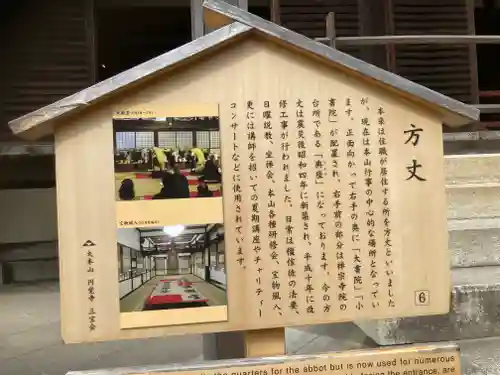 方丈
本来は住職が居る所を方丈といいました
が、現在は本山行事の中心的な場所となってい
ます。正面向かって右手の奥に「大書院」「小
書院」が配置され、右手前の部分は禅宗寺院の
台所である「庫裡」になっております。今の方
丈は震災後昭和四年に新築され、平成十年に改
修工事が行われました。日常は檀信徒の法要、
日曜説教、坐禅会、本山各種研修会、宝物風入、
更には講師を招いての夏期講座やチャリティー
コンサートなどに使用されています。
大本山 円覚寺 三宝会
6
quarters for the abbot but is now used for numerous